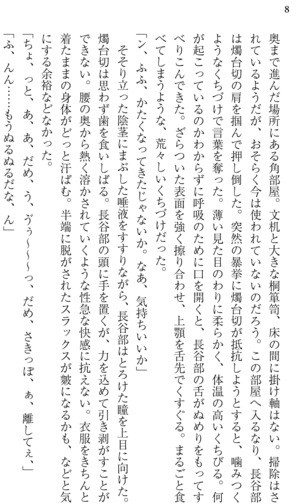 8
奥まで進んだ場所にある角部屋。文机と大きな桐箪笥、床の間に掛け軸はない。掃除はさ
れているようだが、おそらく今は使われていないのだろう。この部屋へ入るなり、長谷部
は燭台切の肩を掴んで押し倒した。突然の暴挙に燭台切が抵抗しようとすると、噛みつく
ようなくちづけで言葉を奪った。薄い見た目のわりに柔らかく、体温の高いくちびる。何
が起こっているのかわからずに呼吸のために口を開くと、長谷部の舌がぬめりをもってす
べりこんできた。ざらついた表面を強く擦り合わせ、上顎を舌先でくすぐる。まるごと食
べてしまうような、荒々しいくちづけだった。
「ン、ふふ、かたくなってきたじゃないか。なあ、気持ちいいか」
そそり立った陰茎にまぶした唾液をすすりながら、長谷部はとろけた瞳を上目に向けた。
燭台切は思わず歯を食いしばる。長谷部の頭に手を置くが、力を込めて引き剥がすことが
できない。腰の奥から熱く溶かされていくような性急な快感に抗えない。衣服をきちんと
着たままの身体がどっと汗ばむ。半端に脱がされたスラックスが皺になるかも、などと気
にする余裕などなかった。
「ちょ、っと、あ、あ、だめ、う、ゔぅ――っ、だめ、さきっぽ、ぁ、離してぇ、」
「ふ、んん……もうぬるぬるだな、ん」